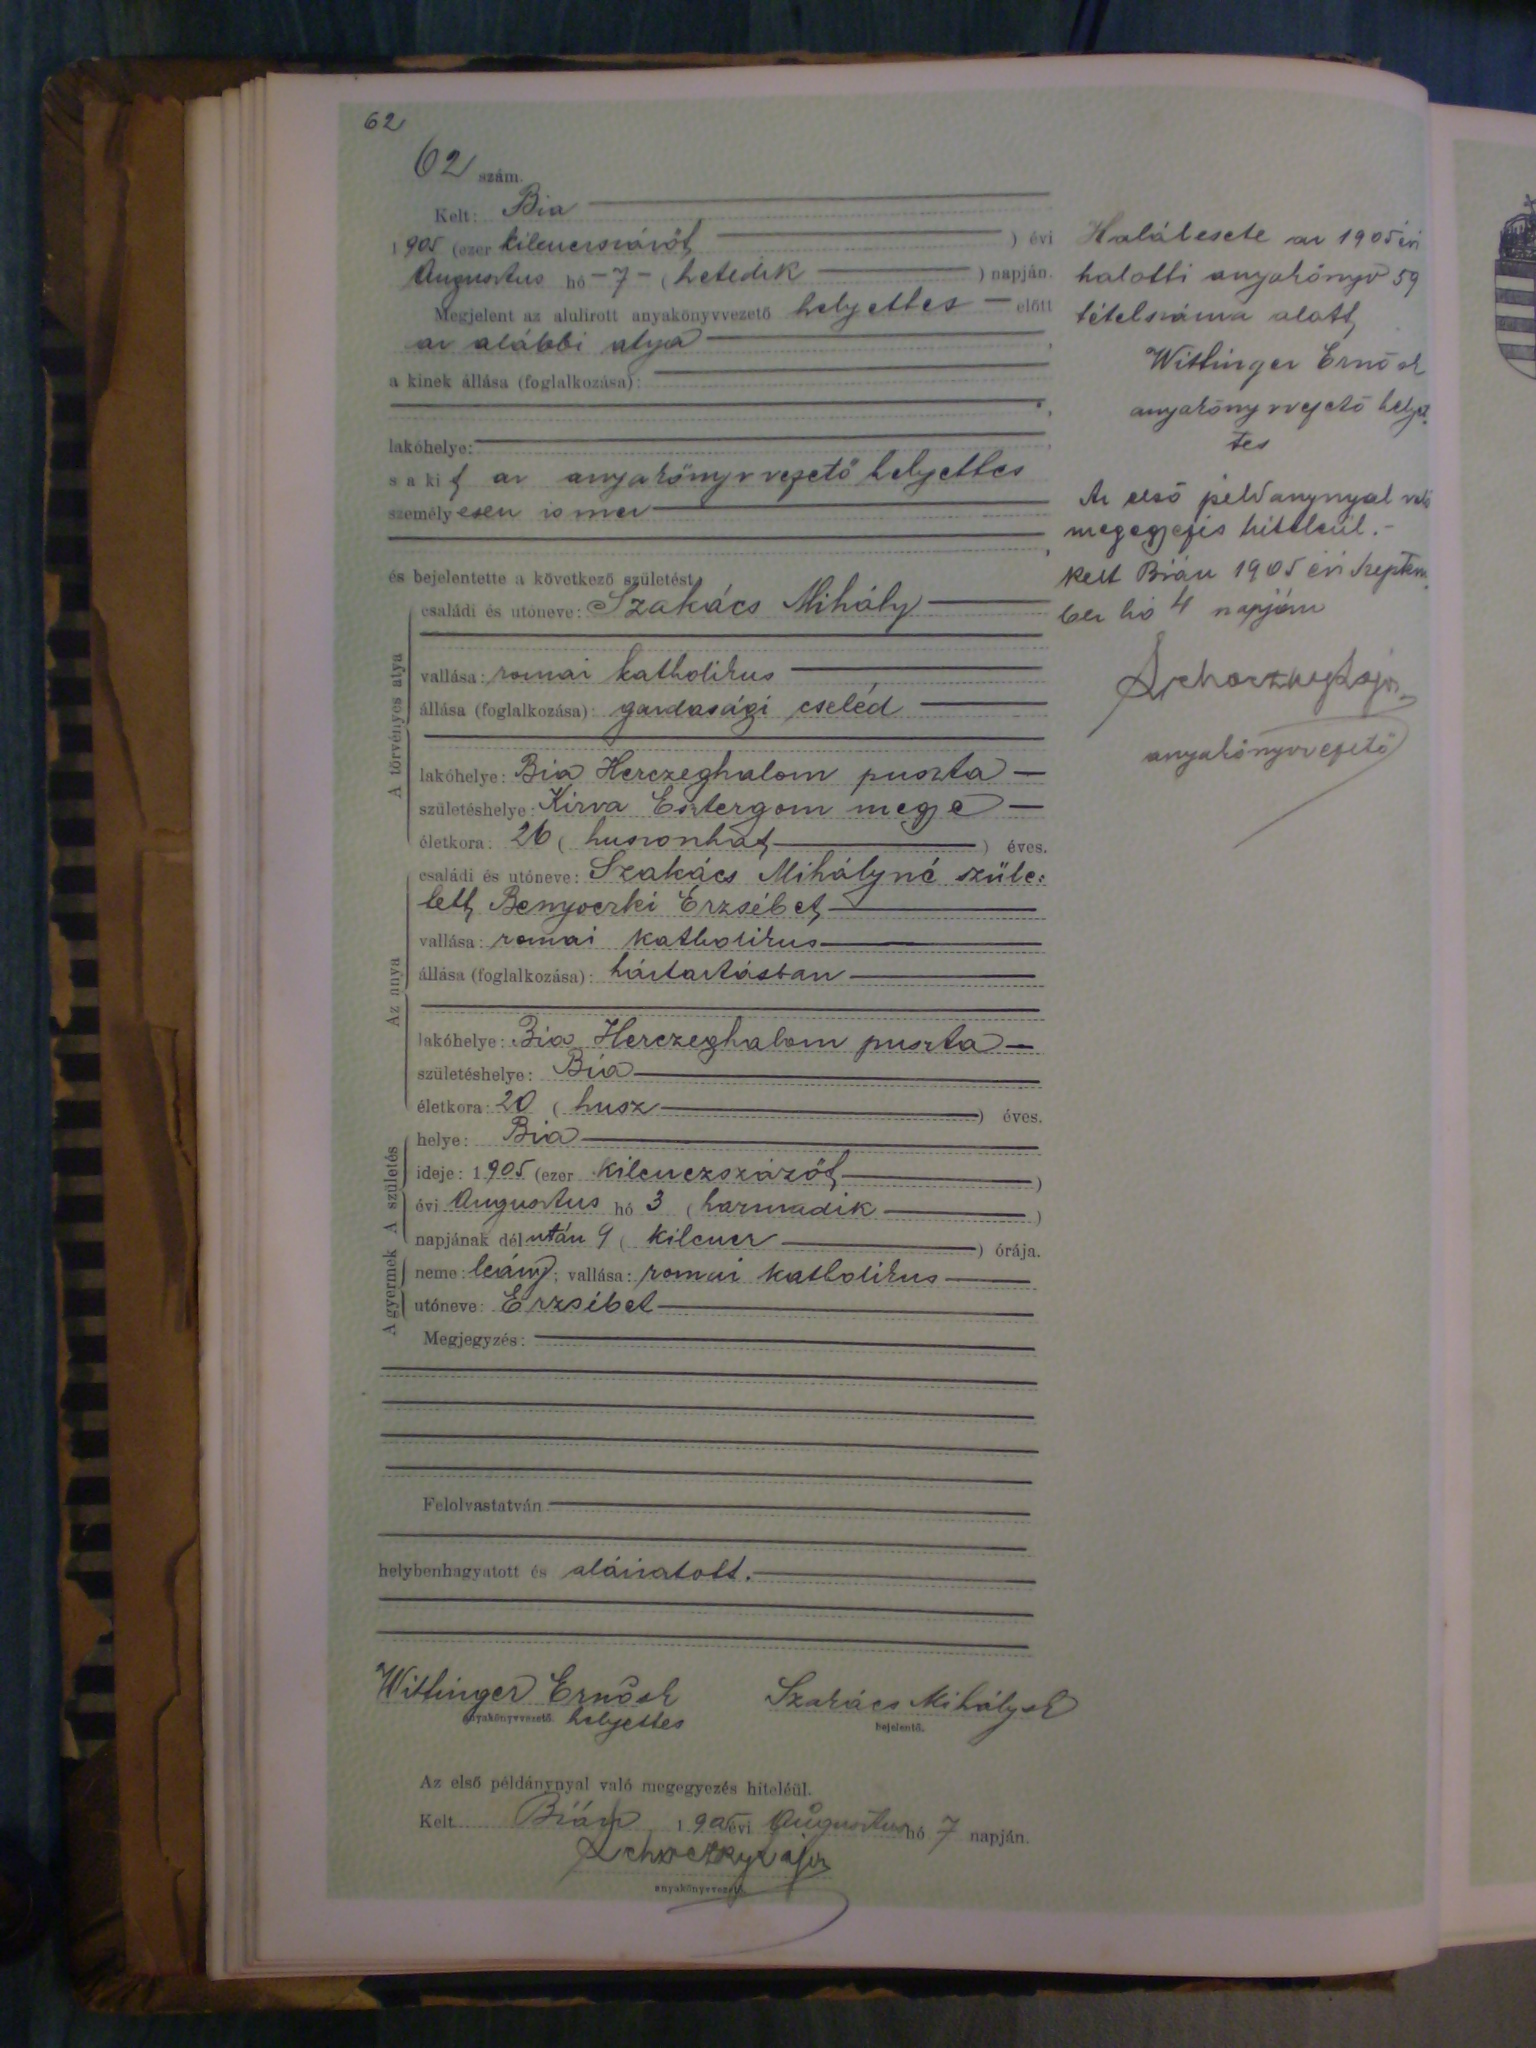 62
62 szám.
Kelt: Bia
1905 (ezer kilenczszázöt) évi
Augusztus hó -7- (hetedik) napján.
Megjelent az alulirott anyakönyvvezető helyettes előtt
az alábbi atya,
a kinek állása (foglalkozása):
lakóhelye:
s a kit az anyakönyvvezető helyettes
személyesen ismer
és bejelentette a következő születést
A törvényes atya
családi és utóneve: Szakács Mihály
vallása: romai katholikus
állása (foglalkozása): gazdasági cseléd
lakóhelye: Bia Herczeghalom puszta
születéshelye: Kirva Esztergom megye
életkora: 26 (huszonhat) éves.
Az anya
családi és utóneve: Szakács Mihályné szüle:
lett Benyoczki Erzsébet
vallása: romai katholikus
állása (foglalkozása): háztartásban
lakóhelye: Bia Herczeghalom puszta
születéshelye: Bia
életkora: 20 (husz) éves.
A születés
helye: Bia
ideje: 1905 (ezer kilenczszázöt)
évi Augusztus hó 3 (harmadik)
napjának délután 9 (kilencz) órája.
A gyermek
neme: leány; vallása: romai katholikus
utóneve: Erzsébet
Megjegyzés:
Felolvastatván
helybenhagyatott és aláiratott.
Wittinger Ernő sk
anyakönyvvezető helyettes
Szakács Mihály sk
bejelentő.
Az első példánynyal való megegyezés hiteléül.
Kelt Bián 1905 évi Augusztus hó 7 napján.
anyakönyvvezető
Halálesete az 1905 évi
halotti anyakönyv 59
tételszáma alatt
Wittinger Ernő sk
anyakönyvvezető helyet
tes
Az első példánynyal való
megegyezés hiteléül.-
Kelt Bián 1905 évi Szeptem
ber hó 4 napján
anyakönyvvezető